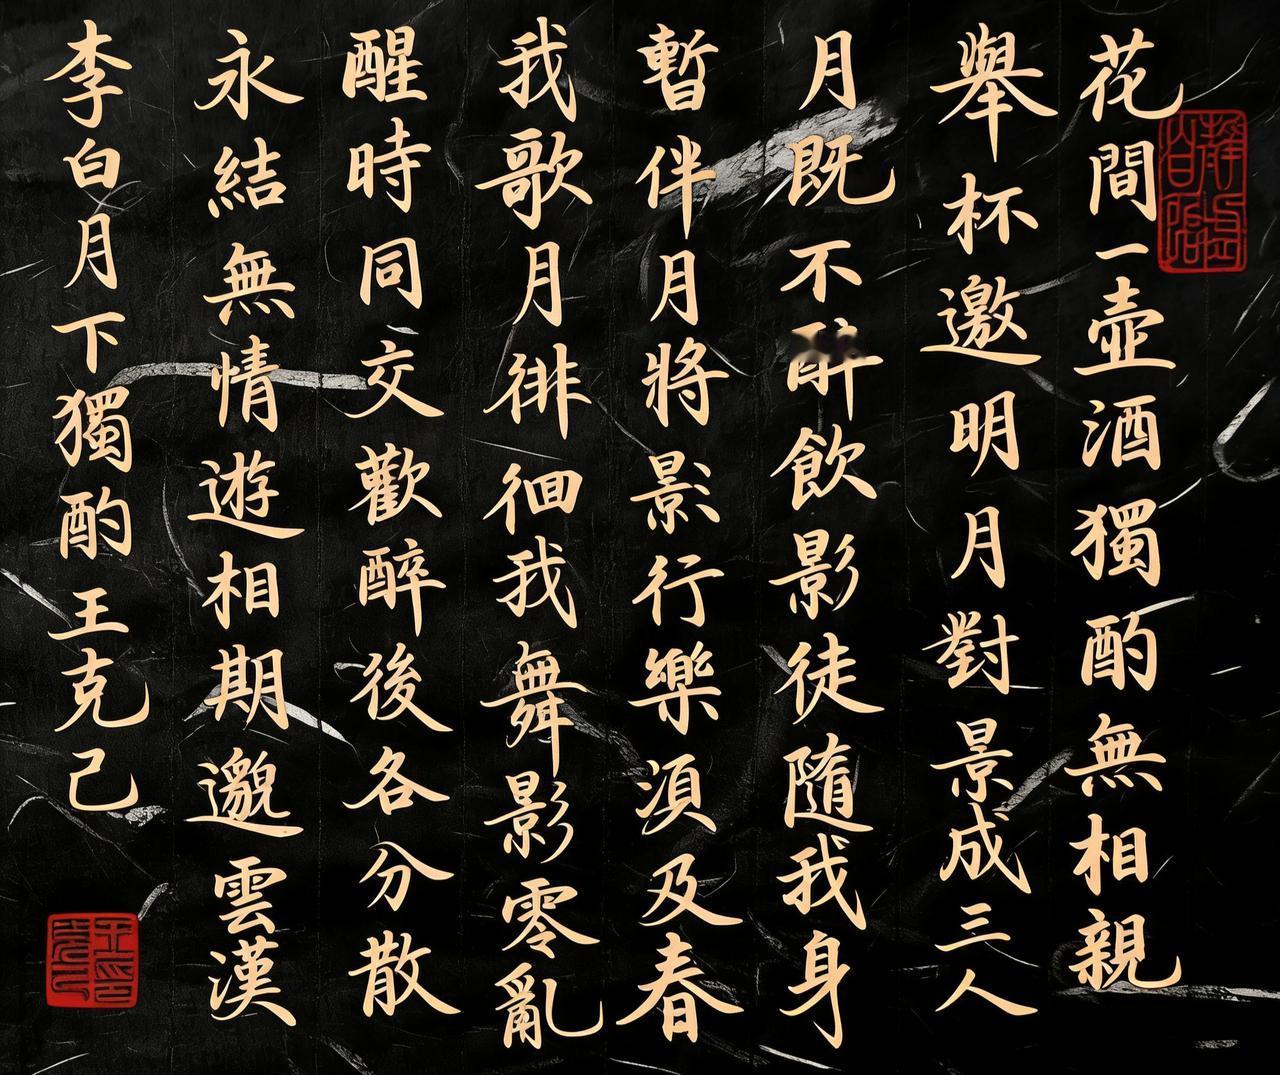 花間一壺酒獨酌無相親
舉杯邀明月對景成三人
月既不飲影徒隨我身
暫伴月將影行樂湏及春
我歌月徘徊我舞影零亂
醒時同交歡醉後各分散
永結無情遊相期邈雲漢
李白月下獨酌王克己